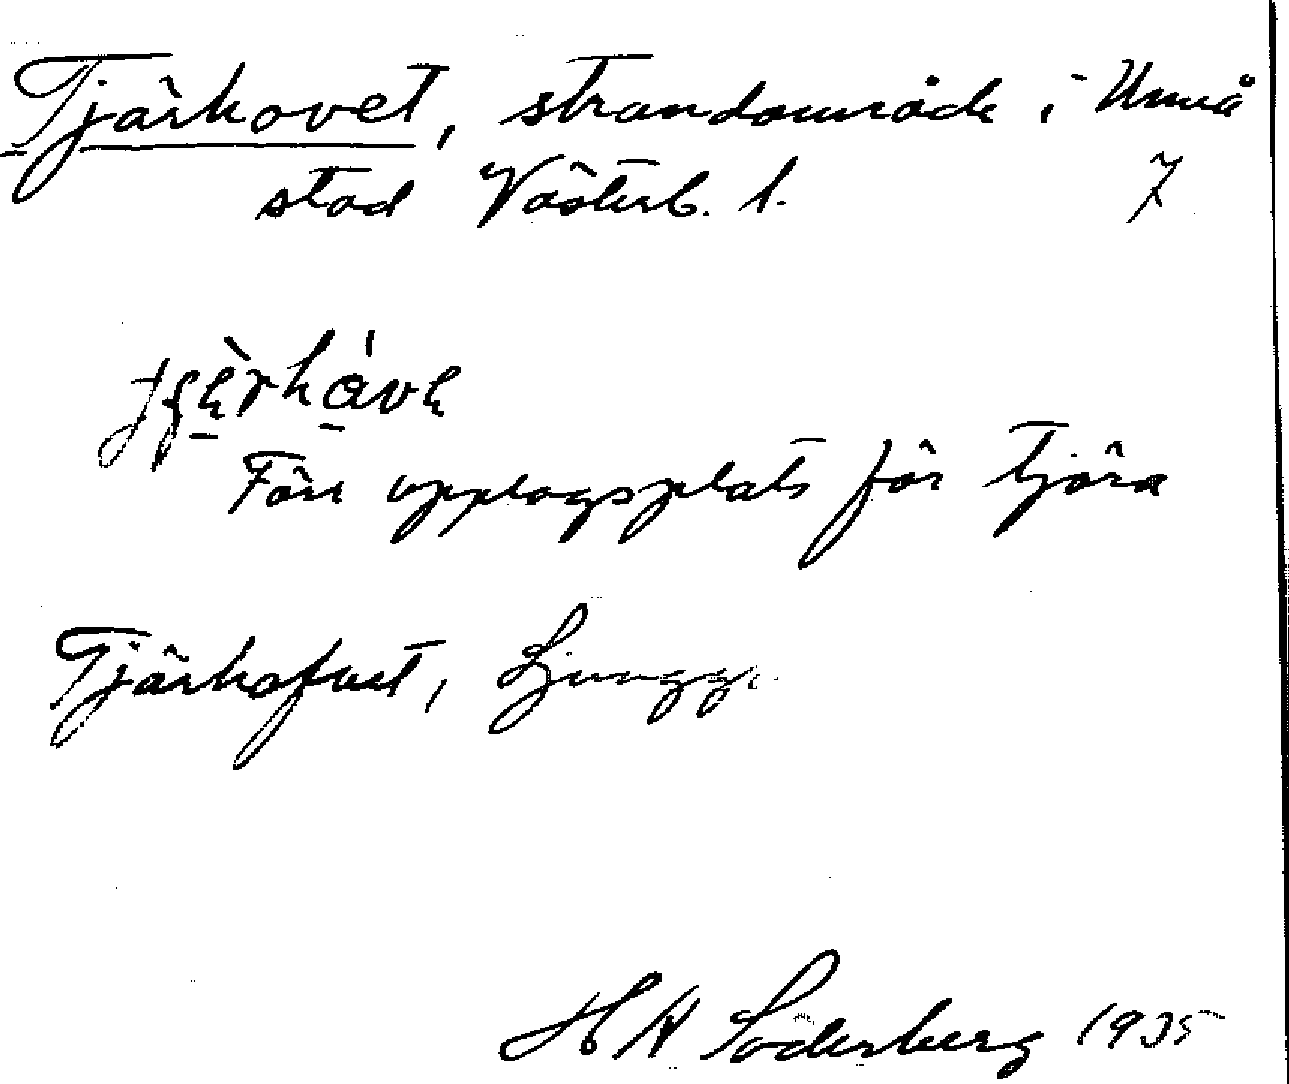 Tjärhovet, strandområde i Umeå
stad Västerb. l. 7
Förr upplagsplats för tjära
Tjärhofvet, Ljungg.
H A Söderberg 1935